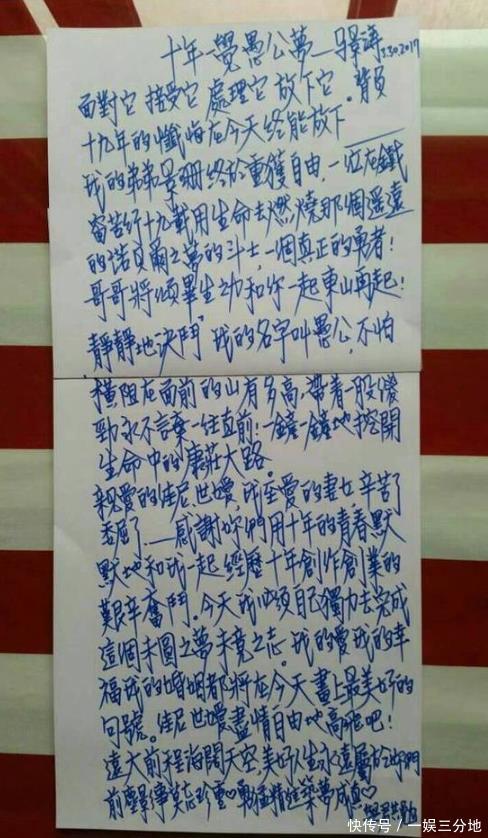 十年一覺愚公夢—馬景濤 3.30.2017
面對它 接受它 處理它 放下它。背負
十九年的懺悔在今天終能放下
我的弟弟景珊終於重獲自由,一位在鐵
窗苦行十九載用生命去燃燒那個遥遠
的諾貝爾之夢的斗士,一個真正的勇者!
哥哥將傾畢生之力和你一起東山再起!
靜靜地決鬥"我的名字叫愚公,不怕
橫阻在面前的山有多高,帶着一股傻
勁永不言棄一往直前!一鏟一鏟地挖開
生命中的康莊大路。
親愛的佳尼,世嫒,我至愛的妻女,辛苦了
委屈了——感謝妳們用十年的青春默
默地和我一起經歷十年創作創業的
艱辛奮鬥。今天我必須自己獨力去完成
這個未圓之夢未竟之志。我的愛我的幸
福我的婚姻都將在今天畫上最美好的
句號。佳尼世嫒盡情自由地高飛吧!
遠大前程海闊天空,美好人生永遠屬於妳們
前塵影事莫忘珍重 勇猛精進築夢成真
快傳号 / 一娱三分地